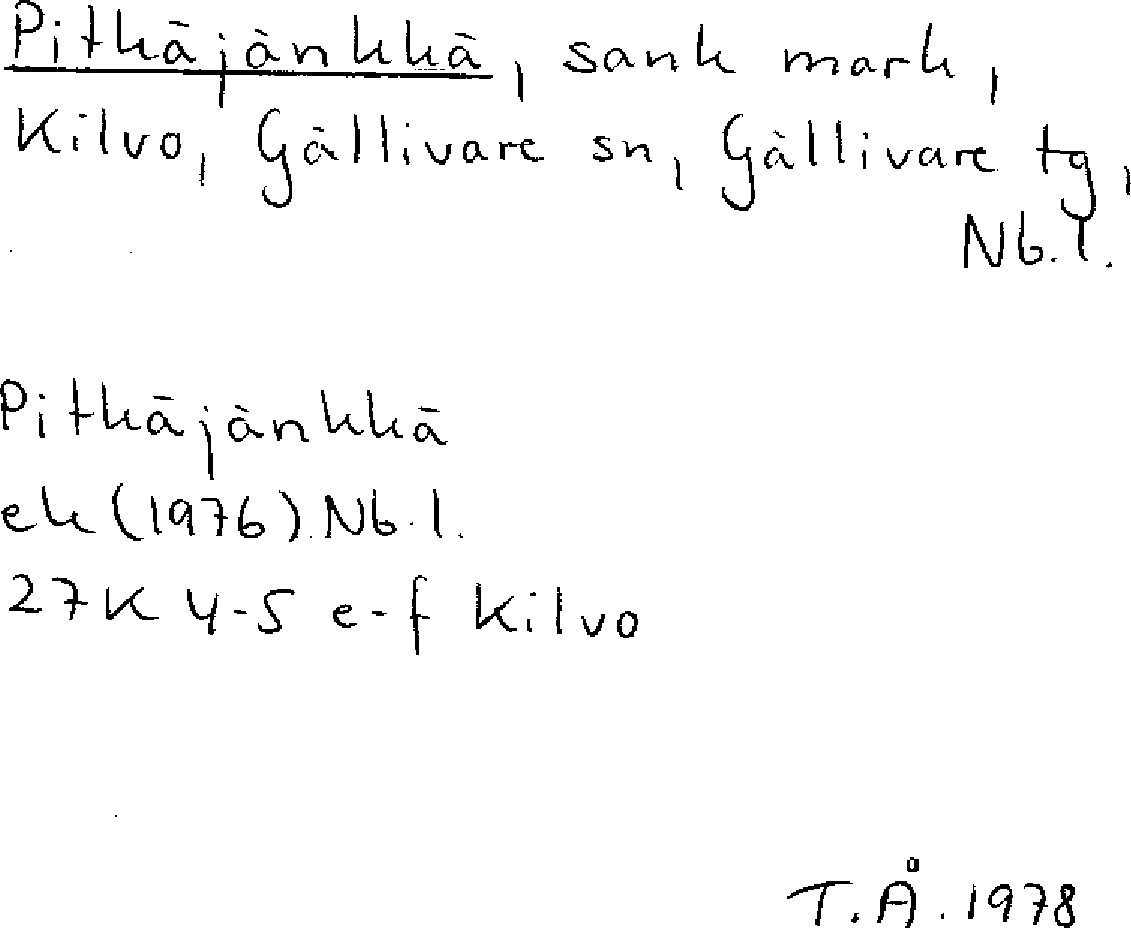 Pitkäjänkkä, sank mark,
Kilvo, Gällivare sn, Gällivare tg,
Nb.l.
Pitkäjänkkä
ek (1976) Nb.l.
27K 4-5 e-f Kilvo
T.Å. 1978